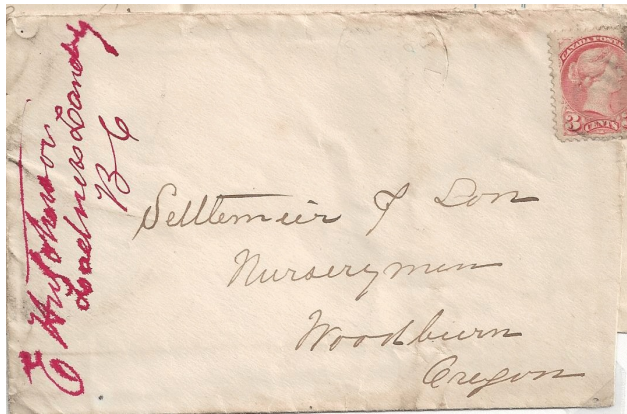 E Hutcherson
Ladners Landing
B C
CANADA POSTAGE
3 CENTS
Settlemeir & Son
Nurserymen
Woodburn
Oregon